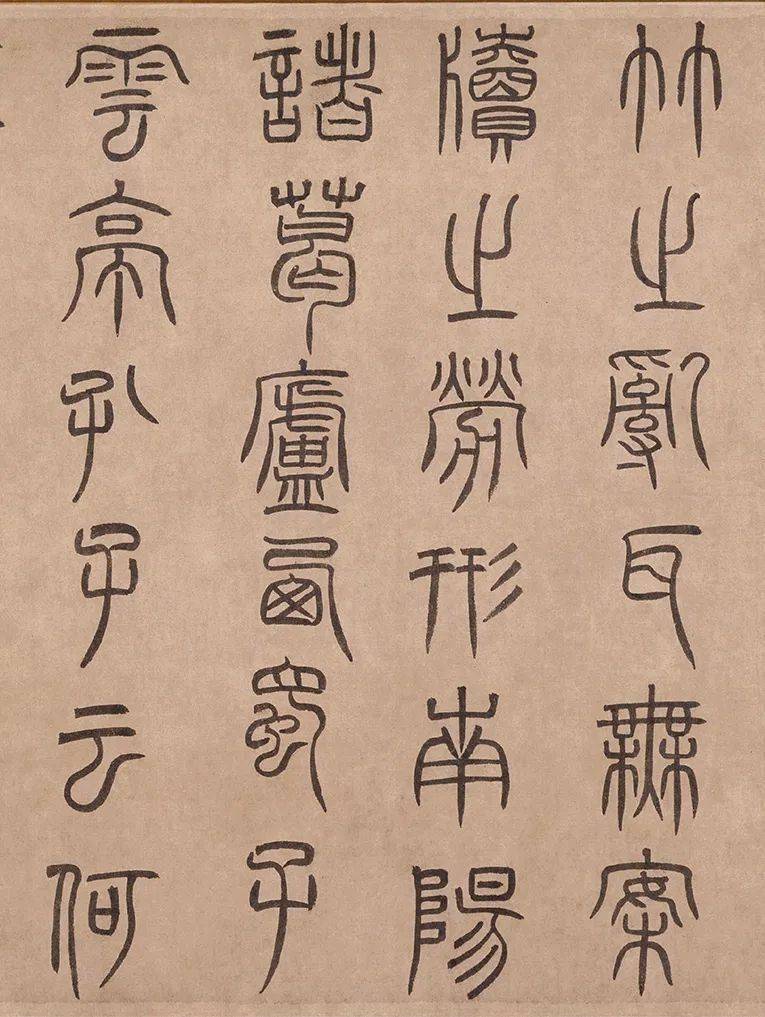 竹之亂耳無案
牘之勞形南陽
諸葛廬西蜀子
雲亭孔子云何